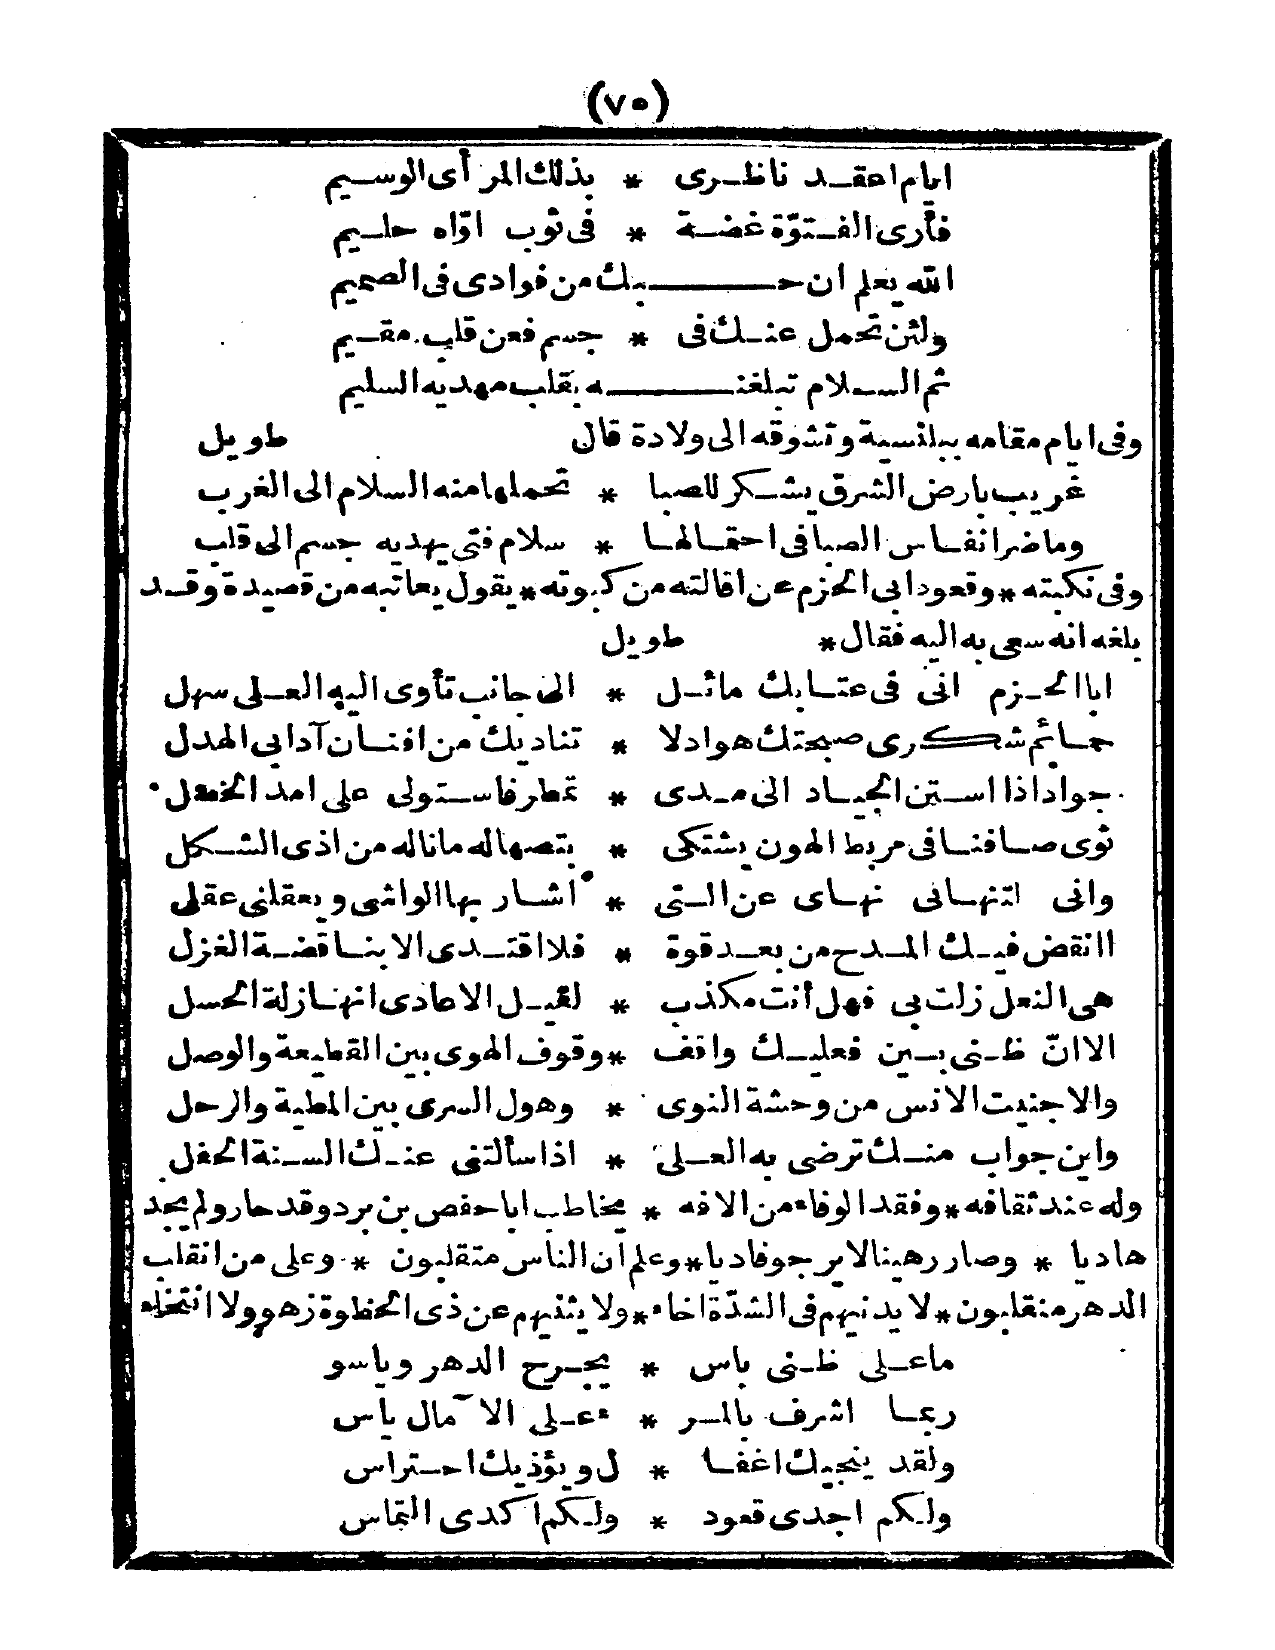 (٧٥)
ايام اعقد ناظرى * بذلك المرأى الوسيم
فأرى الفتوّة غضة * فى ثوب اوّاه حليم
الله يعلم ان حبك من فوادى فى الصميم
ولئن تحمل عنك فى * جسم فعن قلب مقيم
ثم السلام تبلغنه بقلب مهديه السليم
وفى ايام مقامه ببلنسية وتشوقه الى ولادة قال طويل
غريب بارض الشرق يشكر للصبا * تحملها منه السلام الى الغرب
وما ضر انفاس الصبا فى احتمالها * سلام فتى يهديه جسم الى قلب
وفى نكبته * وقعود ابى الحزم عن اقالته من كبوته * يقول يعاتبه من قصيدة وقد
بلغه انه سعى به اليه فقال * طويل
ابا الحزم انى فى عتابك مائل * الى جانب تأوى اليه العلى سهل
حمائم شكرى صبحتك هوادلا * تناديك من افنان آدابى الهدل
جواد اذا استن الجياد الى مدى * تمطر فاستولى على امد الخصل
ثوى صافنا فى مربط الهون يشتكى * بتصهاله ماناله من اذى الشكل
وانى لتنهانى نهاى عن التى * اشار بها الواشى ويعقلنى عقلى
اانقض فيك المدح من بعد قوة * فلا اقتدى الا بناقضة الغزل
هى النعل زلت بى فهل أنت مكذب * لقيل الاعادى انها زلة الحسل
الا انّ ظنى بين فعليك واقف * وقوف الهوى بين القطيعة والوصل
والا جنيت الانس من وحشة النوى * وهول السرى بين المطية والرحل
واين جواب منك ترضى به العلى * اذا سألتنى عنك السنة الحفل
وله عند ثقافه * وفقد الوفاء من الافه * يخاطب ابا حفص بن برد وقد حار ولم يجد
هاديا * وصار رهينا لا يرجو فاديا * وعلم ان الناس متقلبون * وعلى من انقلب
الدهر منقلبون * لا يدنيهم فى الشدّة اخاء * ولا يثنيهم عن ذى الحظوة زهو ولا انتخاء
ما على ظنى باس * يجرح الدهر وياسو
ربما اشرف بالمر * ء على الآمال ياس
ولقد ينجيك اغفا * ل ويؤذيك احتراس
ولكم اجدى قعود * ولكم اكدى التماس